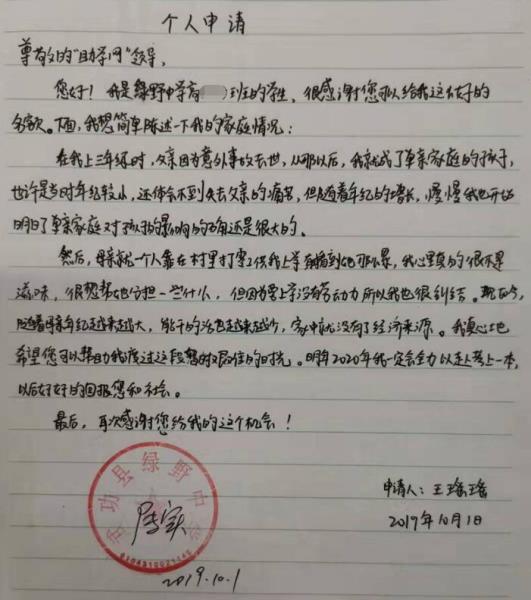 个人申请
尊敬的"助学网"领导,
您好！我是绿野中学高 班的学生，很感谢您可以给我这么好的
名额。下面，我想简单陈述一下我的家庭情况：
在我上三年级时，父亲因意外事故去世，从那以后，我就成了单亲家庭的孩子，
也许是当时年纪较小，还体会不到失去父亲的痛苦，但随着年纪的增长，慢慢我也开始
明白了单亲家庭对孩子的影响的确还是很大的。
然后，母亲就一个人靠在村里打零工供我上学每看到她那么累，我心里真的很不是
滋味，很想帮她分担一些什么，但因为要上学没有劳动力所以我也很纠结。现如今，
随着母亲年纪越来越大，能干的活也越来越少，家中就没有了经济来源。我真心地
希望您可以帮助我度过这段暂时困住的时光。明年2020年我一定会全力以赴考上一本，
以后好好的回报您和社会。
最后，再次感谢您给我的这个机会！
申请人：王瑶瑶
2019年10月1日
武功县绿野中学
属实
6104310021445
2019.10.1